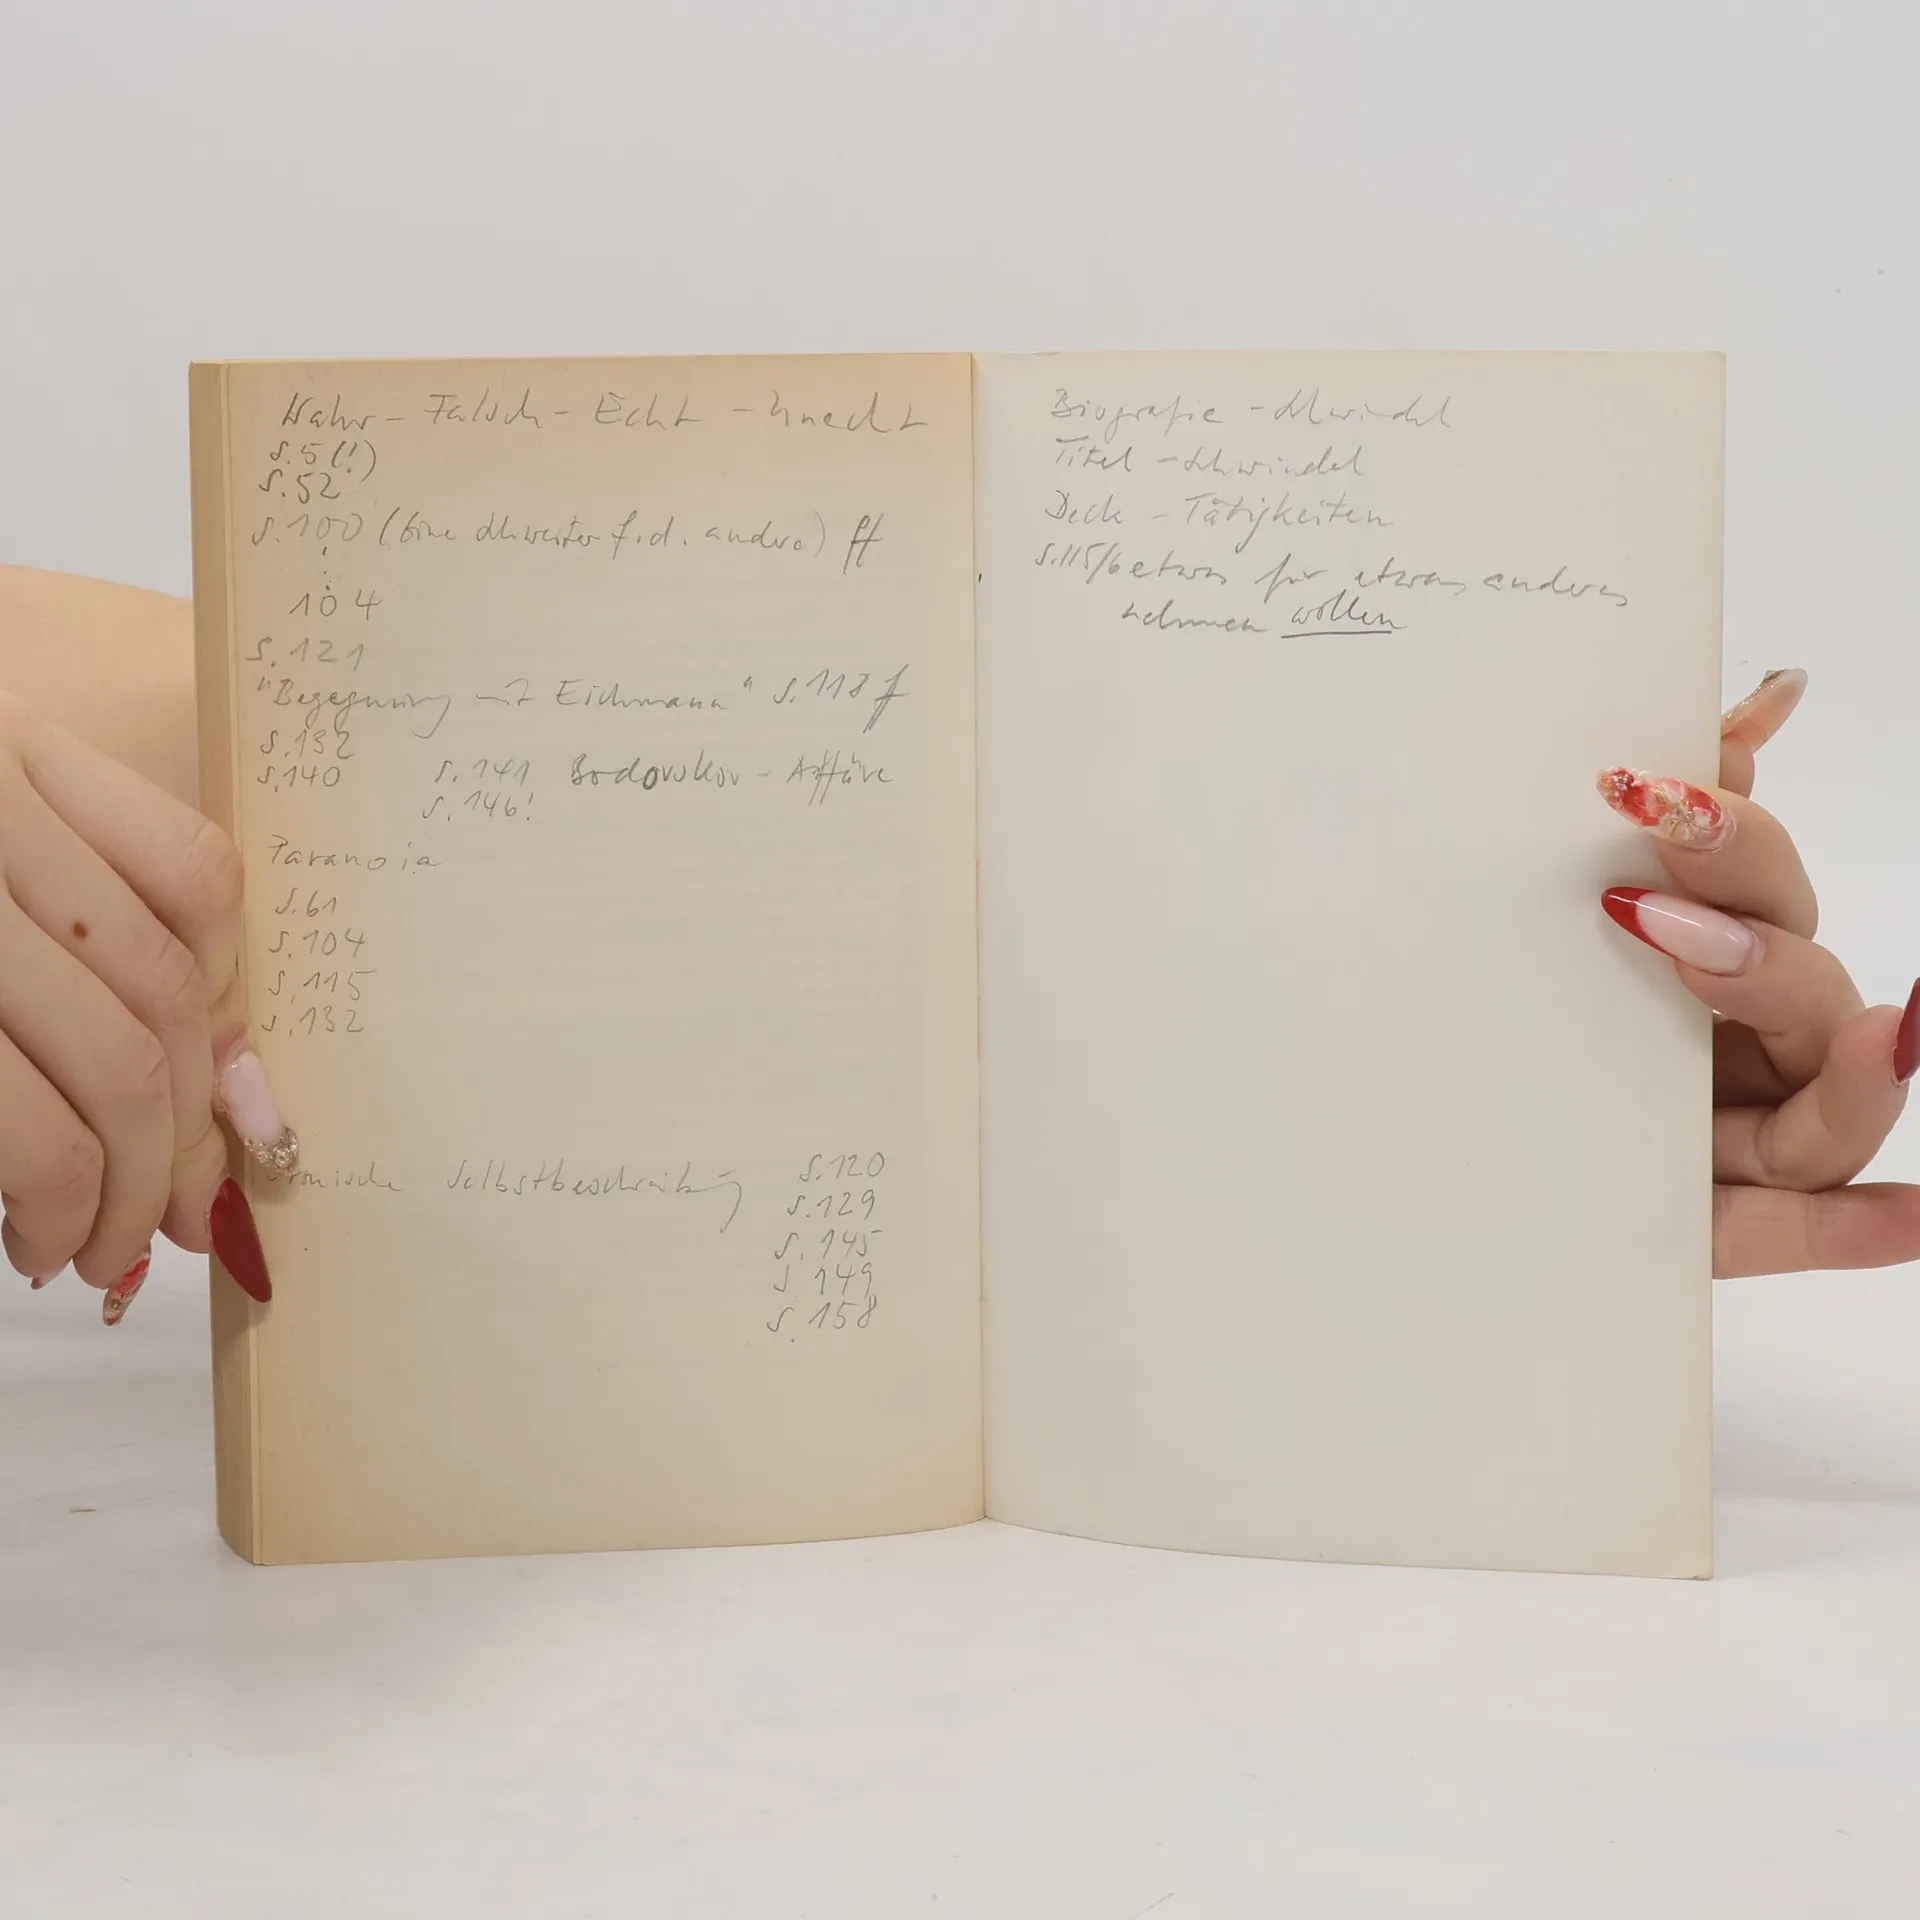 Wahr - Falsch - Echt - Unecht
S. 5 (!)
S. 52
S. 100 (Eine Schwester f. d. andere) ff
104
S. 121
"Begegnung mit Eichmann" S. 118 f
S. 132
S. 140 S. 141 Bodovskov - Affäre
S. 146!
Paranoia
S. 61
S. 104
S. 115
S. 132
ironische Selbstbeschreibung S. 120
S. 129
S. 145
S. 149
S. 158
Biografie - Schwindel
Titel - Schwindel
Deck - Tätigkeiten
S. 115/6 etwas für etwas anderes
nehmen wollen